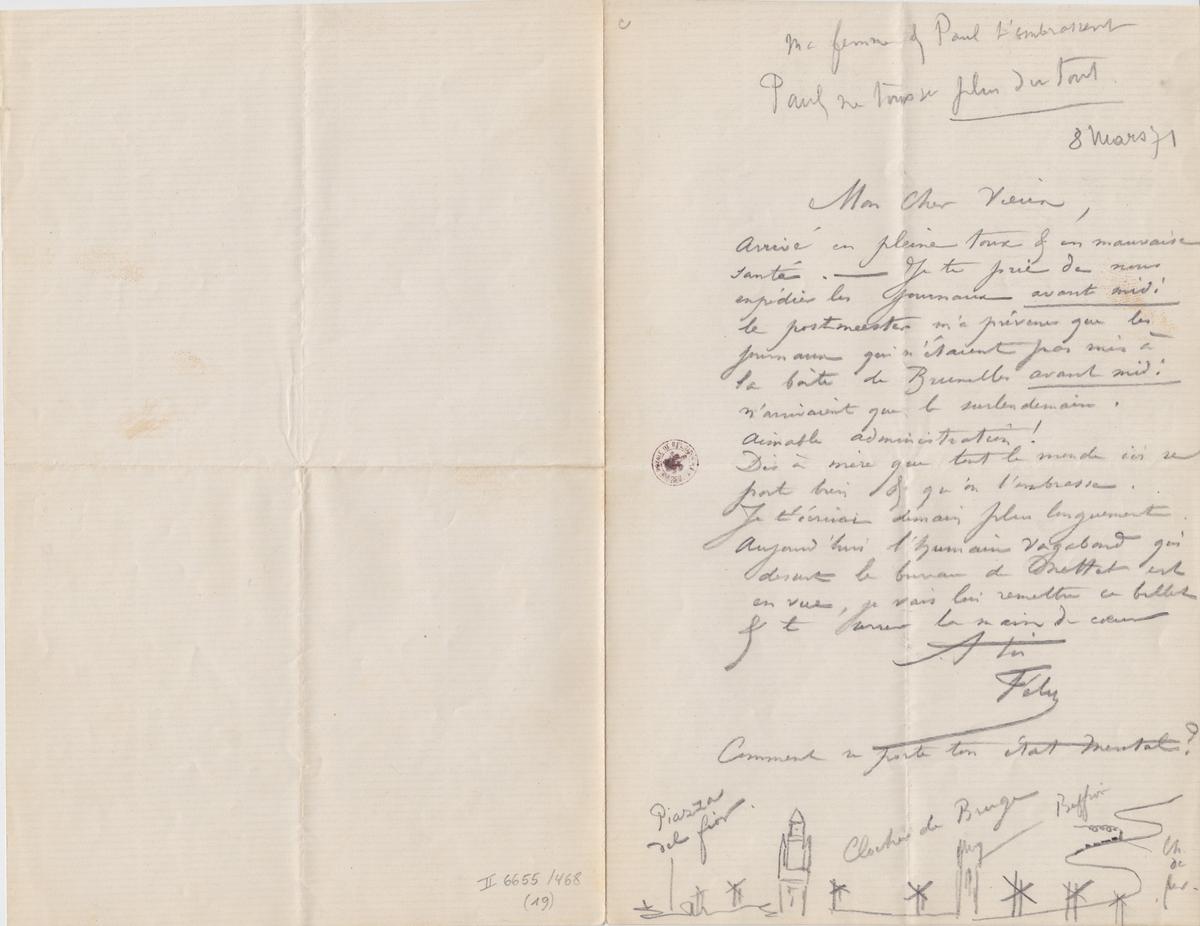 Ma femme & Paul t'embrassent
Paul ne tousse plus du tout.
8 Mars 71
Mon Cher
Arrivé en pleine toux & en mauvaise
santé. — Je te prie de nous
expédier les journaux avant midi
le postmeester m'a prévenu que les
journaux qui n'étaient pas mis à
la boîte de Bruxelles avant midi
n'arrivaient que le surlendemain.
Aimable administration!
Dis à mère que tout le monde ici se
port bien & qu'on l'embrasse.
Je t'écrirai demain plus longuement.
Aujourd'hui l'humain vagabond qui
dessert le bureau de est
en vue, je vais lui remettre ce billet
& te serrer la main de cœur
A toi
Fély
Comment se porte ton état mental?
Piazza
del fior.
Clocher de Bruge
Beffroi
Ch.
de
fer.
II 6655/468
(19)